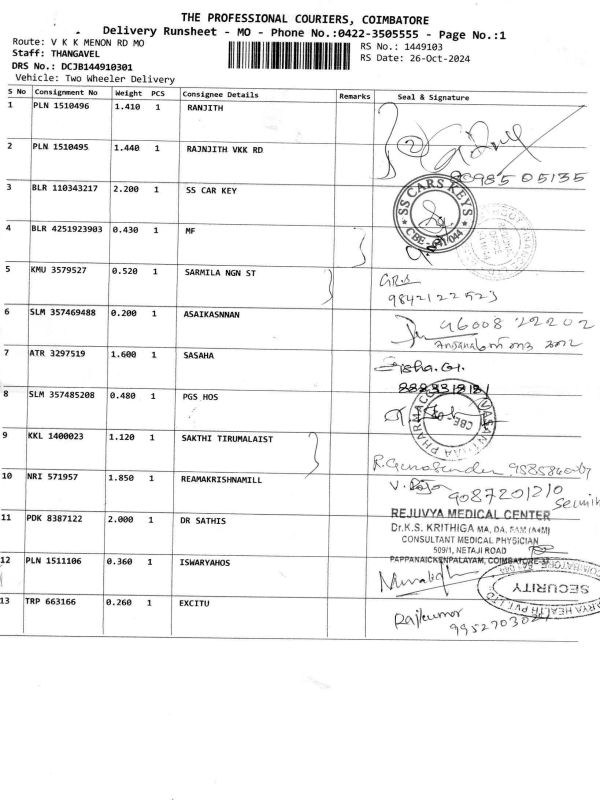 THE PROFESSIONAL COURIERS, COIMBATORE
Delivery Runsheet - MO - Phone No.:0422-3505555 - Page No.:1
Route: V K K MENON RD MO
Staff: THANGAVEL
DRS No.: DCJB144910301
Vehicle: Two Wheeler Delivery
RS No.: 1449103
RS Date: 26-Oct-2024
S No Consignment No Weight PCS Consignee Details Remarks Seal & Signature
1 PLN 1510496 1.410 1 RANJITH
2 PLN 1510495 1.440 1 RAJNJITH VKK RD
2
98505135
3 BLR 110343217 2.200 1 SS CAR KEY
SS CARS KEYS
CBE - 641044
4 BLR 4251923903 0.430 1 MF
5 KMU 3579527 0.520 1 SARMILA NGN ST
9842122523
6 SLM 357469488 0.200 1 ASAIKASNNAN
96008 22202
7 ATR 3297519 1.600 1 SASAHA
8 SLM 357485208 0.480 1 PGS HOS
9 KKL 1400023 1.120 1 SAKTHI TIRUMALAIST
10 NRI 571957 1.850 1 REAMAKRISHNAMILL
9087201210
11 PDK 8387122 2.000 1 DR SATHIS
REJUVYA MEDICAL CENTER
Dr.K.S. KRITHIGA MA, DA,
CONSULTANT MEDICAL PHYSICIAN
509/1, NETAJI ROAD
PAPPANAICKENPALAYAM, COIMBATORE-37
12 PLN 1511106 0.360 1 ISWARYAHOS
SECURITY
13 TRP 663166 0.260 1 EXCITU
Rajkumar